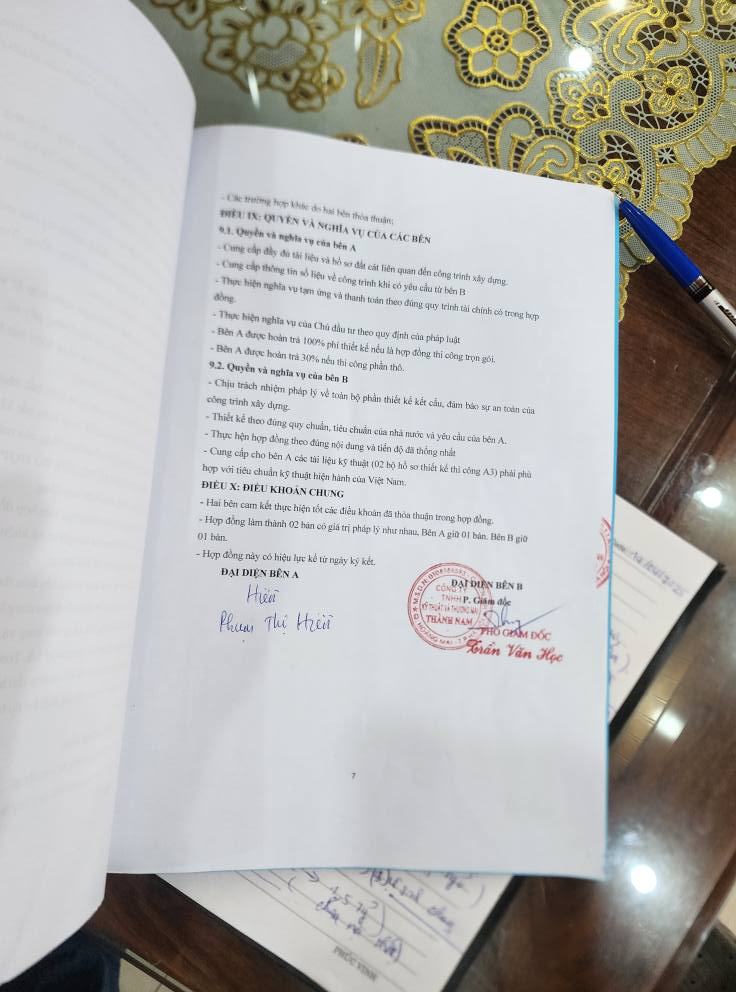 - Các trường hợp khác do hai bên thỏa thuận;
ĐIỀU IX: QUYỀN VÀ NGHĨA VỤ CỦA CÁC BÊN
9.1. Quyền và nghĩa vụ của bên A
- Cung cấp đầy đủ tài liệu và hồ sơ đất cát liên quan đến công trình xây dựng.
- Cung cấp thông tin số liệu về công trình khi có yêu cầu từ bên B
- Thực hiện nghĩa vụ tạm ứng và thanh toán theo đúng quy trình tài chính có trong hợp
đồng.
- Thực hiện nghĩa vụ của Chủ đầu tư theo quy định của pháp luật
- Bên A được hoàn trả 100% phí thiết kế nếu là hợp đồng thi công trọn gói.
- Bên A được hoàn trả 30% nếu thi công phần thô.
9.2. Quyền và nghĩa vụ của bên B
- Chịu trách nhiệm pháp lý về toàn bộ phần thiết kế kết cấu, đảm bảo sự an toàn của
công trình xây dựng.
- Thiết kế theo đúng quy chuẩn, tiêu chuẩn của nhà nước và yêu cầu của bên A.
- Thực hện hợp đồng theo đúng nội dung và tiến độ đã thống nhất
- Cung cấp cho bên A các tài liệu kỹ thuật (02 bộ hồ sơ thiết kế thi công A3) phải phù
hợp với tiêu chuẩn kỹ thuật hiện hành của Việt Nam.
ĐIỀU X: ĐIỀU KHOẢN CHUNG
- Hai bên cam kết thực hiện tốt các điều khoản đã thỏa thuận trong hợp đồng.
- Hợp đồng làm thành 02 bản có giá trị pháp lý như nhau, Bên A giữ 01 bản. Bên B giữ
01 bản.
- Hợp đồng này có hiệu lực kể từ ngày ký kết.
ĐẠI DIỆN BÊN A
Hiền
Phạm Thị Hiền
ĐẠI DIỆN BÊN B
P. Giám đốc
CÔNG TY
TNHH
KỸ THUẬT VÀ THƯƠNG MẠI
THÀNH NAM
Q. HOÀNG MAI
PHÓ GIÁM ĐỐC
Trần Văn Học
7
PHÚC VINH